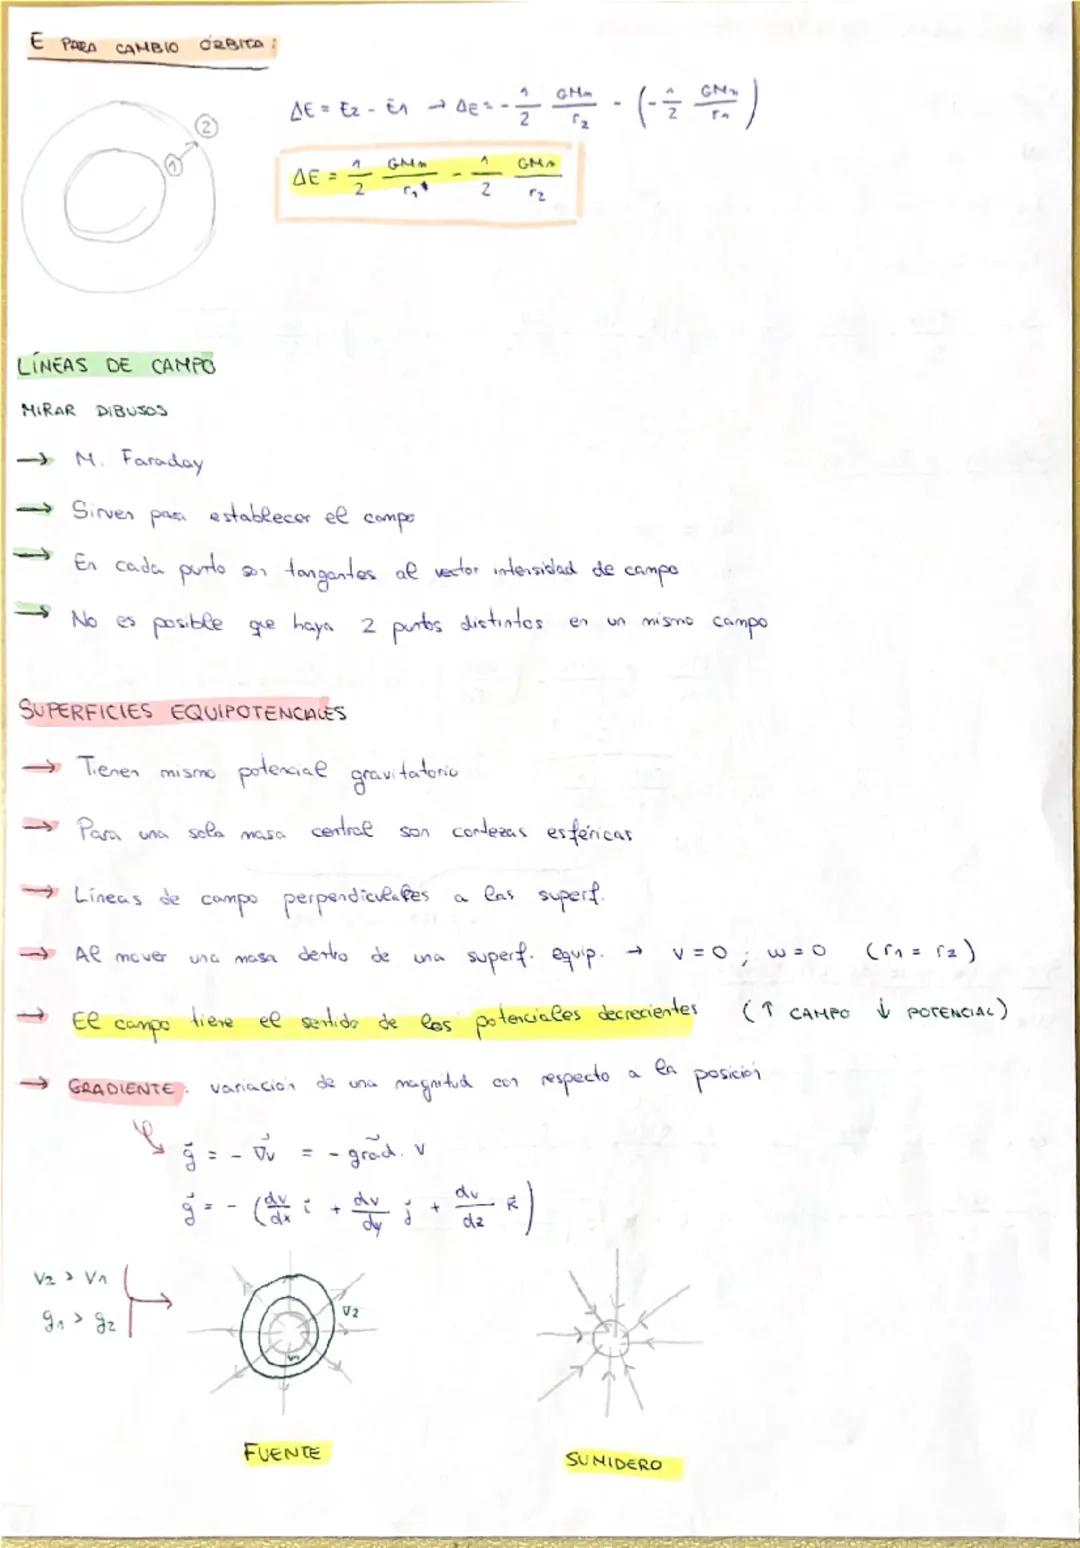 E PARA CAMBIO ÓRBITA:
① → ②
ΔE = E2 - E1 → ΔE = - 1/2 GMm/r2 - (- 1/2 GMm/r1)
ΔE = 1/2 GMm/r1 - 1/2 GMm/r2
LÍNEAS DE CAMPO
MIRAR DIBUJOS
→ M. Faraday
→ Sirven para establecer el campo
→ En cada punto son tangentes al vector intensidad de campo
→ No es posible que haya 2 puntos distintos en un mismo campo
SUPERFICIES EQUIPOTENCIALES
→ Tienen mismo potencial gravitatorio
→ Para una sola masa central son cortezas esféricas
→ Líneas de campo perpendiculares a las superf.
→ Al mover una masa dentro de una superf. equip. → v = 0 ; w = 0 (r1 = r2)
→ El campo tiene el sentido de los potenciales decrecientes (↑ CAMPO ↓ POTENCIAL)
→ GRADIENTE: variación de una magnitud con respecto a la posición
g⃗ = - ∇⃗v = - grad. v
g⃗ = - (dv/dx i⃗ + dv/dy j⃗ + dv/dz k⃗)
V2 > V1
g1 > g2
V2
V1
FUENTE
SUMIDERO